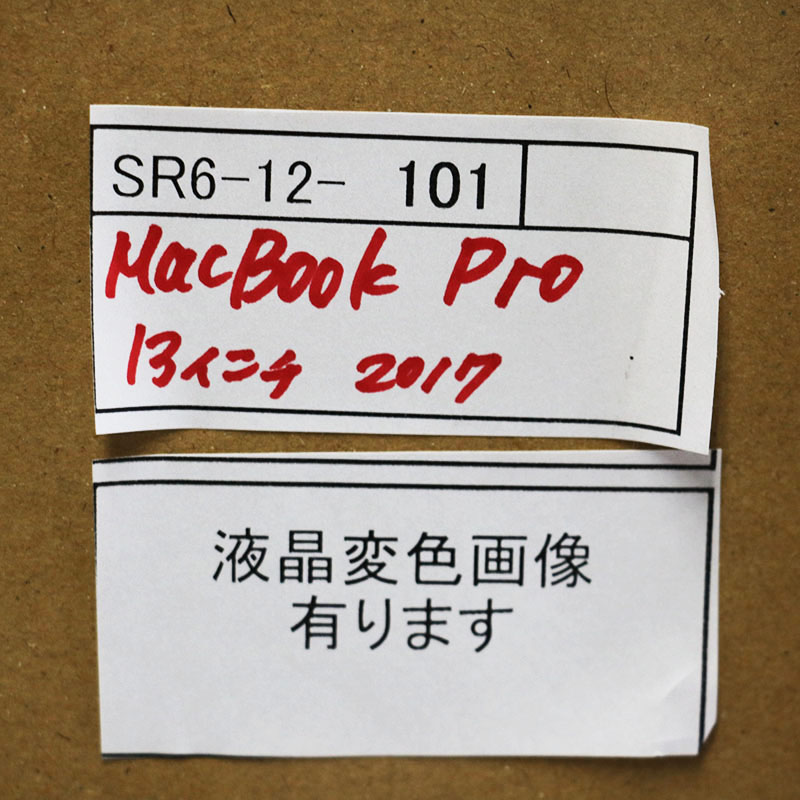 SR6-12- 101
MacBook Pro
13インチ 2017
液晶変色画像
有ります